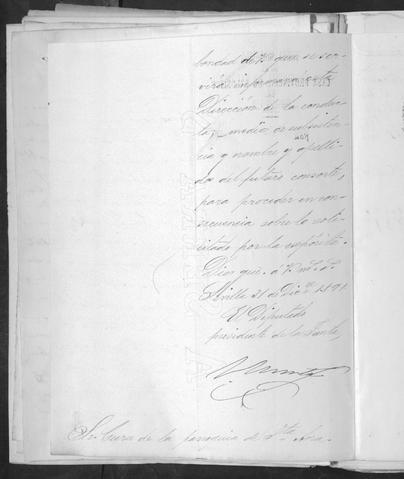 bondad de V. quien se ser-
virá informar a esta
Dirección de la conduc-
ta, medio de subsisten-
cia y nombre y apelli-
dos del futuro consorte,
para proceder en con-
secuencia sobre lo soli-
citado por la expósita.
Dios gue. á V. m. a.
Sevilla 21 de Dice. 1891
El Diputado
presidente de la Junta,
Sr. Cura de la parroquia de Sta. Ana